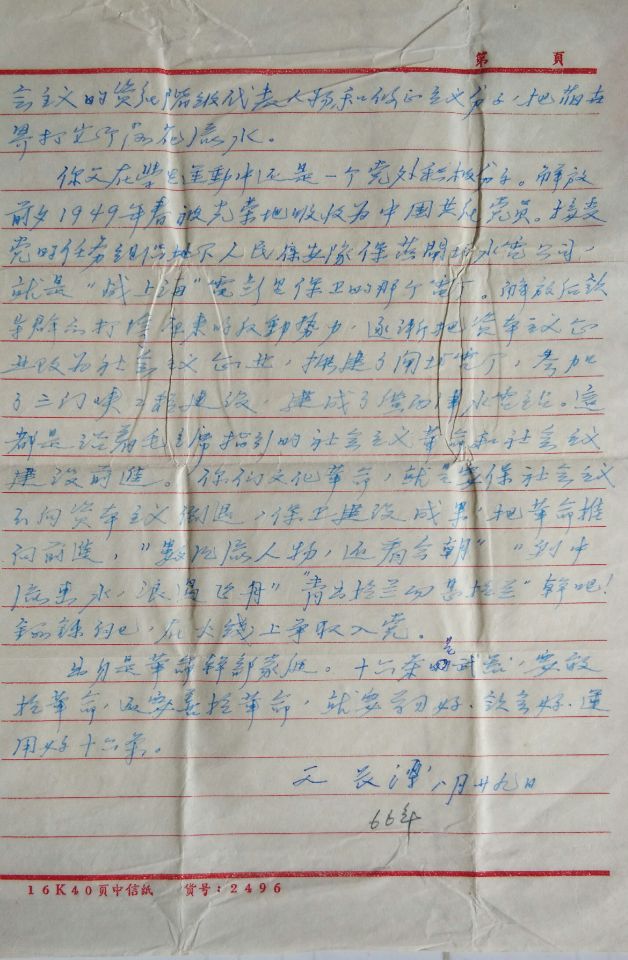 第 頁
会主义的资化階级代表人物和修正主义分子，把萌
界打它个落花流水。
你父在学生運動中还是一个党外积极分子。解放
前夕1949年春被光荣地吸收为中国共化党员。接受
党的任务组织地下人民保安隊保护閘北水電公司，
就是“战上海”電影里保卫的那个電厂。解放后
羣众打反動势力，逐渐把资本主义企
业改为社会主义企业，扩建了闸北電厂，参加
了三门峡工程建设，建成了水電站。這
都是沿着毛主席指引的社会主义革命和社会主义
建设前進。你们文化革命，就是要保社会主义
不向资本主义倒退，保卫建设成果，把革命推
向前進，“數风流人物，还看今朝”“到中
流击水，浪遏飞舟”幹吧！
锻鍊自己，在火线上争取入党。
出身是革命幹部家庭。十六条是武器，要敢
于革命，还要善于革命，就要学习好、领会好、運
用好十六条。
八月廿九日
66年
16K40頁中信紙 货号：2496